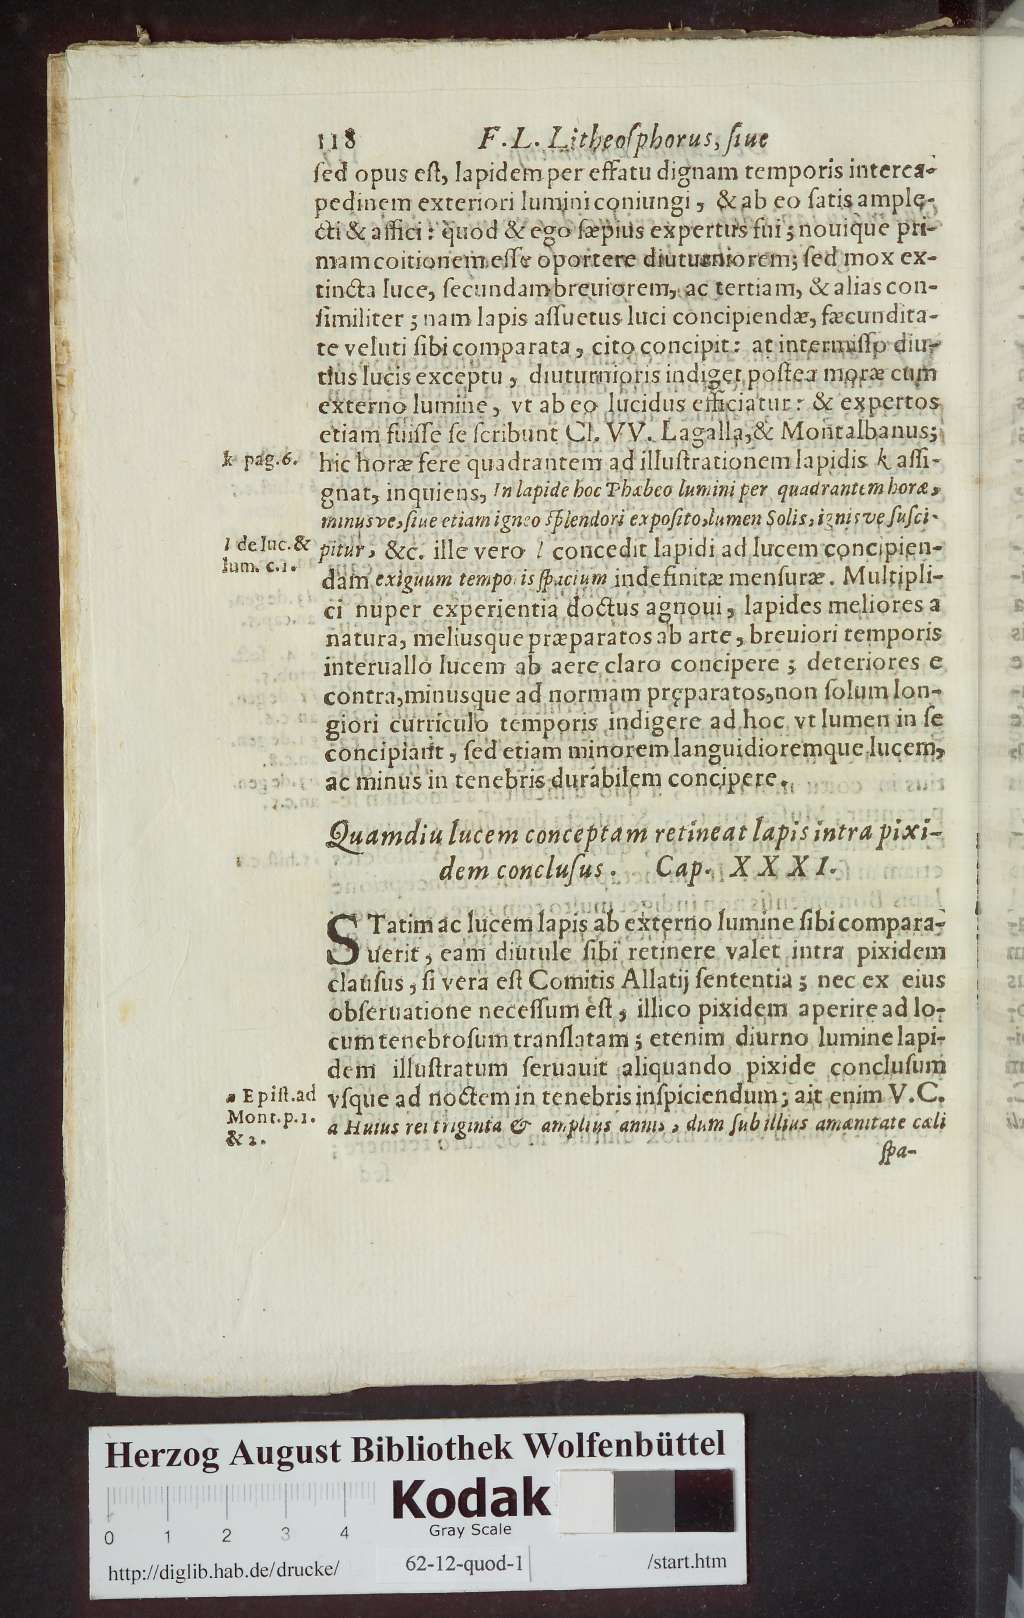 118 F. L. Litheosphorus, siue
sed opus est, lapidem per effatu dignam temporis interca-
pedinem exteriori lumini coniungi, & ab eo satis ample-
cti & affici: quod & ego sæpius expertus fui; nouique pri-
mam coitionem esse oportere diuturniorem; sed mox ex-
tincta luce, secundam breuiorem, ac tertiam, & alias con-
similiter; nam lapis assuetus luci concipiendæ, fæcundita-
te veluti sibi comparata, cito concipit: at intermisso diu-
tius lucis exceptu, diuturnioris indiget postea moræ cum
externo lumine, vt ab eo lucidus efficiatur: & expertos
etiam fuisse se scribunt Cl. VV. Lagalla, & Montalbanus;
k pag. 6. hic horæ fere quadrantem ad illustrationem lapidis k assi-
gnat, inquiens, In lapide hoc Phæbeo lumini per quadrantem horæ,
minusve, siue etiam igneo splendori exposito, lumen Solis, ignisve susci-
l de luc. & pitur, &c. ille vero l concedit lapidi ad lucem concipien-
lum. c. 1. dam exiguum temporis spacium indefinitæ mensuræ. Multipli-
ci nuper experientia doctus agnoui, lapides meliores a
natura, meliusque præparatos ab arte, breuiori temporis
interuallo lucem ab aere claro concipere; deteriores e
contra, minusque ad normam pręparatos, non solum lon-
giori curriculo temporis indigere ad hoc vt lumen in se
concipiant, sed etiam minorem languidioremque lucem,
ac minus in tenebris durabilem concipere.
Quamdiu lucem conceptam retineat lapis intra pixi-
dem conclusus. Cap. XXXI.
STatim ac lucem lapis ab externo lumine sibi compara-
uerit, eam diutule sibi retinere valet intra pixidem
clausus, si vera est Comitis Allatij sententia; nec ex eius
obseruatione necessum est, illico pixidem aperire ad lo-
cum tenebrosum translatam; etenim diurno lumine lapi-
dem illustratum seruauit aliquando pixide conclusum
a Epist. ad vsque ad noctem in tenebris inspiciendum; ait enim V. C.
Mont. p. 1. a Huius rei triginta & amplius annis, dum sub illius amænitate cæli
& 2.
spa-
Herzog August Bibliothek Wolfenbüttel
Kodak
Gray Scale
0 1 2 3 4
http://diglib.hab.de/drucke/ 62-12-quod-1 /start.htm